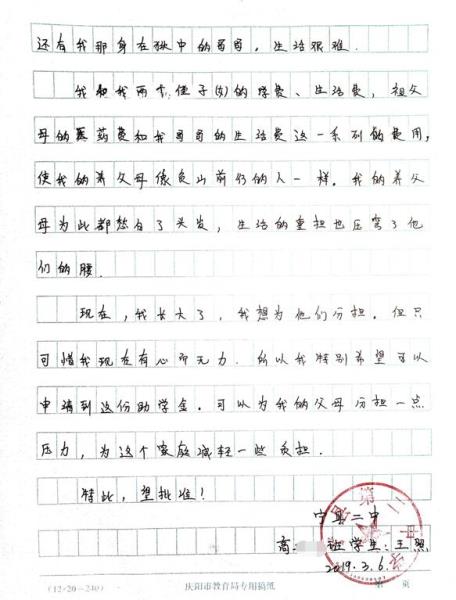 还有我那身在狱中的哥哥，生活艰难.
我和我两个侄子(女)的学费、生活费，祖父
母的医药费和我哥哥的生活费这一系列的费用，
使我的养父母像负山前行的人一样。我的养父
母为此都愁白了头发，生活的重担也压弯了他
们的腰.
现在，我长大了，我想为他们分担。但只
可惜我现在有心而无力.所以我特别希望可以
申请到这份助学金。可以为我的父母分担一点
压力，为这个家庭减轻一些负担.
特此，望批准！
宁县二中
高 班学生：王照
2019.3.6.
(12×20=240) 庆阳市教育局专用稿纸 第 页